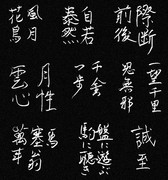 前後
際断
泰然
自若
花鳥
風月
一望千里
雲心
月性
誠
至
盤に遊
駒に聴き
塞翁
馬
萬年